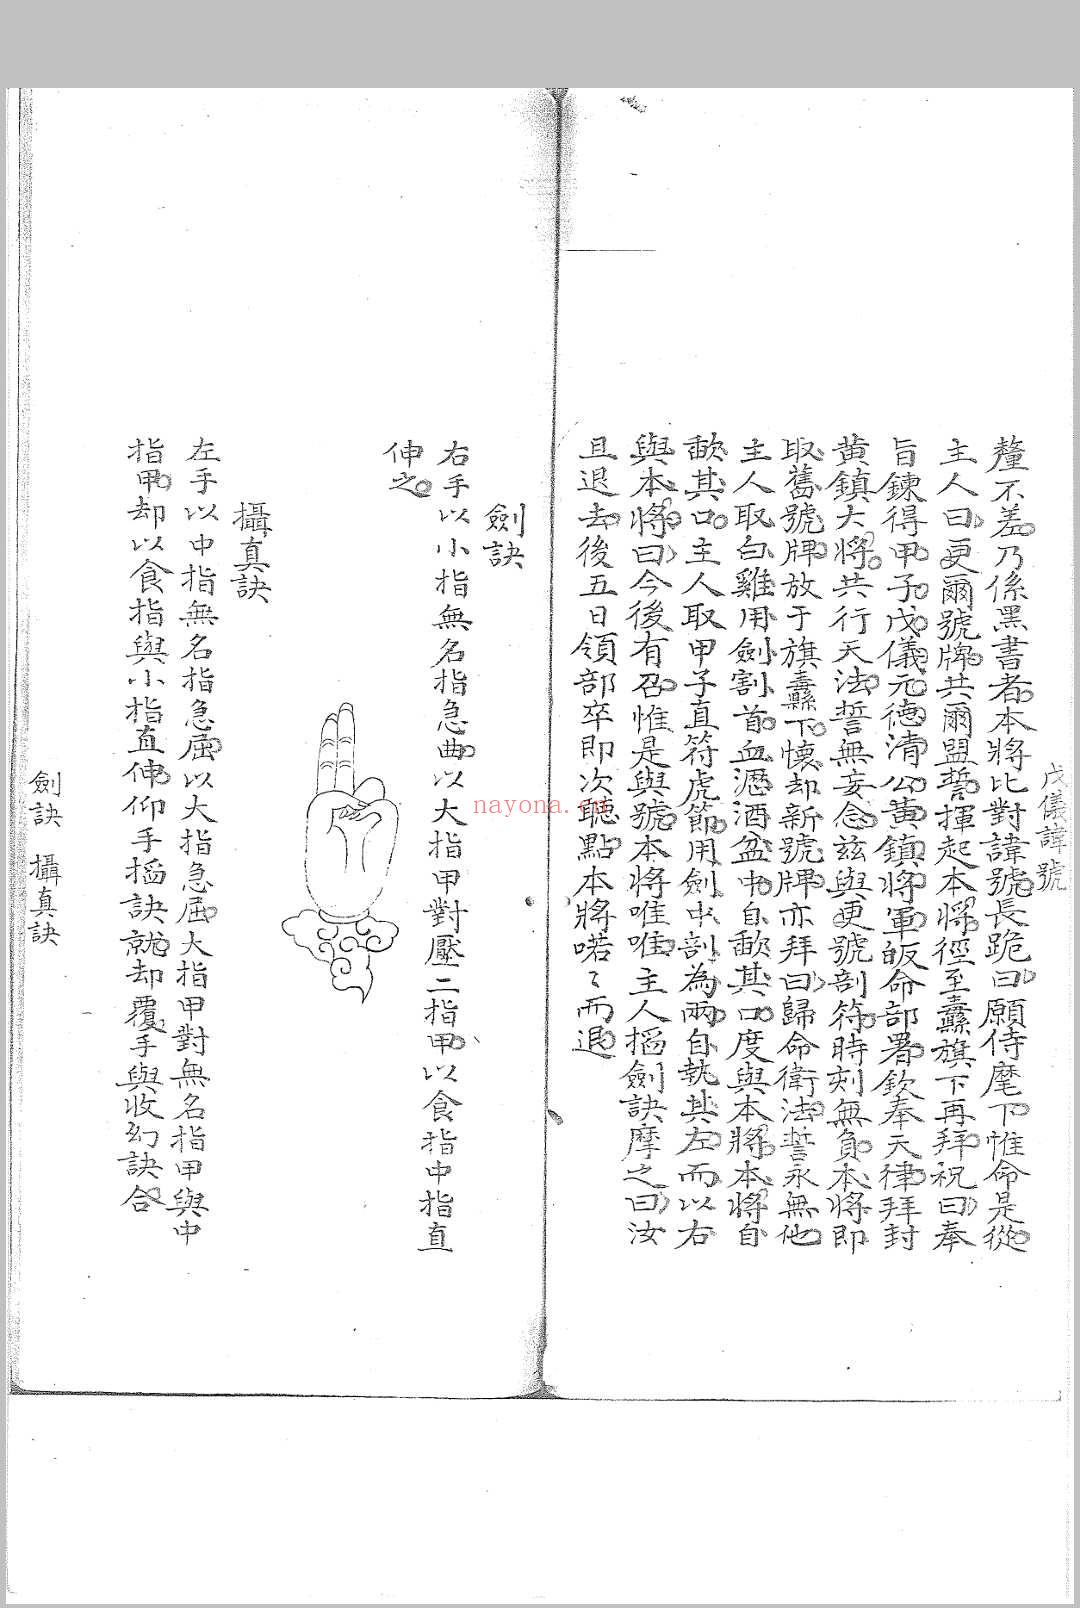 戊儀諱號
釐不差。乃係黑書者。本將比對諱號。長跪曰。願侍麾下。惟命是從。
主人曰。更爾號牌。共爾盟誓。揮起本將。徑至纛旗下再拜。祝曰。奉
旨鍊得甲子。戊儀元德清公黃鎮將軍。皈命部署。欽奉天律。拜封
黃鎮大將。共行天法。誓無妄念。茲與更號剖符。時刻無負。本將即
取舊號牌。放于旗纛下。懷却新號牌。亦拜曰。歸命衛法。誓永無他。
主人取白雞。用劍割首。血瀝酒盆中。自歃其口。度與本將。本將自
歃其口。主人取甲子真符虎節。用劍中剖為兩。自執其左。而以右
與本將曰。今後有召。惟是與號。本將唯唯。主人搯劍訣摩之曰。汝
且退去。後五日領部卒。即次聽點。本將喏々而退。
劍訣
右手以小指無名指急曲。以大指甲對壓二指甲。以食指中指直
伸之。
攝真訣
左手以中指無名指急屈。以大指急屈。大指甲對無名指甲與中
指甲。却以食指與小指直伸。仰手搯訣就。却覆手與收幻訣合。
劍訣 攝真訣
nayona.cn